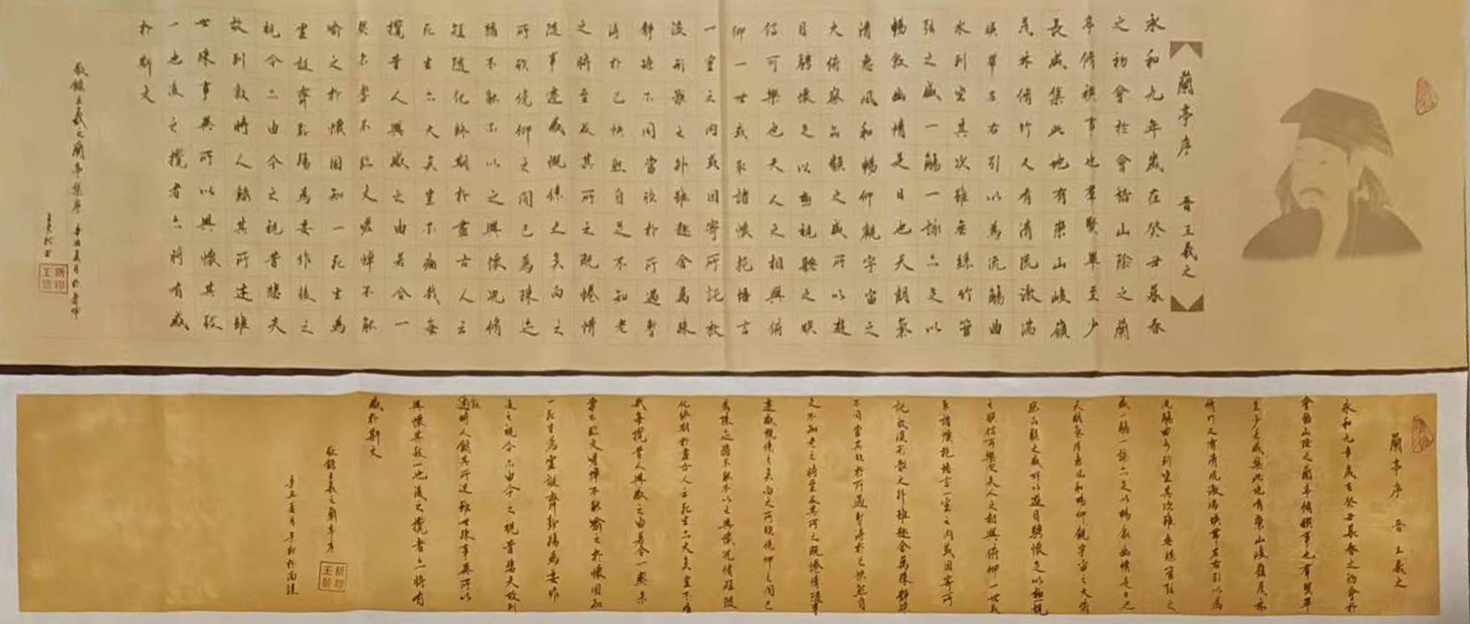 蘭亭序 晉 王羲之
永和九年歲在癸丑暮春
之初會於會稽山陰之蘭
亭脩禊事也羣賢畢至少
長咸集此地有崇山峻嶺
茂林脩竹又有清流激湍
暎帶左右引以為流觴曲
水列坐其次雖無絲竹管
弦之盛一觴一詠亦足以
暢敘幽情是日也天朗氣
清惠風和暢仰觀宇宙之
大俯察品類之盛所以遊
目騁懷足以極視聽之娛
信可樂也夫人之相與俯
仰一世或取諸懷抱悟言
一室之內或因寄所託放
浪形骸之外雖趣舍萬殊
靜躁不同當欣於所遇暫
得於己快然自足不知老
之將至及其所之既惓情
隨事遷感慨係之矣向之
所欣俛仰之間已為陳迹
猶不能不以之興懷況脩
短隨化終期於盡古人云
死生亦大矣豈不痛哉每
攬昔人興感之由若合一
契未嘗不臨文嗟悼不能
喻之於懷固知一死生為
虛誕齊彭殤為妄作後之
視今亦由今之視昔悲夫
故列敘時人錄其所述雖
世殊事異所以興懷其致
一也後之攬者亦將有感
於斯文
敬錄王羲之蘭亭集序 辛丑夏月於
蘭亭序 晉 王羲之
永和九年歲在癸丑暮春之初會於
會稽山陰之蘭亭脩禊事也羣賢畢
至少長咸集此地有崇山峻嶺茂林
脩竹又有清流激湍暎帶左右引以為
流觴曲水列坐其次雖無絲竹管弦之
盛一觴一詠亦足以暢敘幽情是日也
天朗氣清惠風和暢仰觀宇宙之大俯
察品類之盛所以遊目騁懷足以極視
聽之娛信可樂也夫人之相與俯仰一世或
取諸懷抱悟言一室之內或因寄所
託放浪形骸之外雖趣舍萬殊靜躁
不同當其欣於所遇暫得於己快然自
足不知老之將至及其所之既惓情隨事
遷感慨係之矣向之所欣俛仰之間已
為陳迹猶不能不以之興懷況脩短隨
化終期於盡古人云死生亦大矣豈不痛
哉每攬昔人興感之由若合一契未
嘗不臨文嗟悼不能喻之於懷固知
一死生為虛誕齊彭殤為妄作
後之視今亦由今之視昔悲夫故列
敘時人錄其所述雖世殊事異所以
興懷其致一也後之攬者亦將有
感於斯文
敬錄王羲之蘭亭序
辛丑夏月